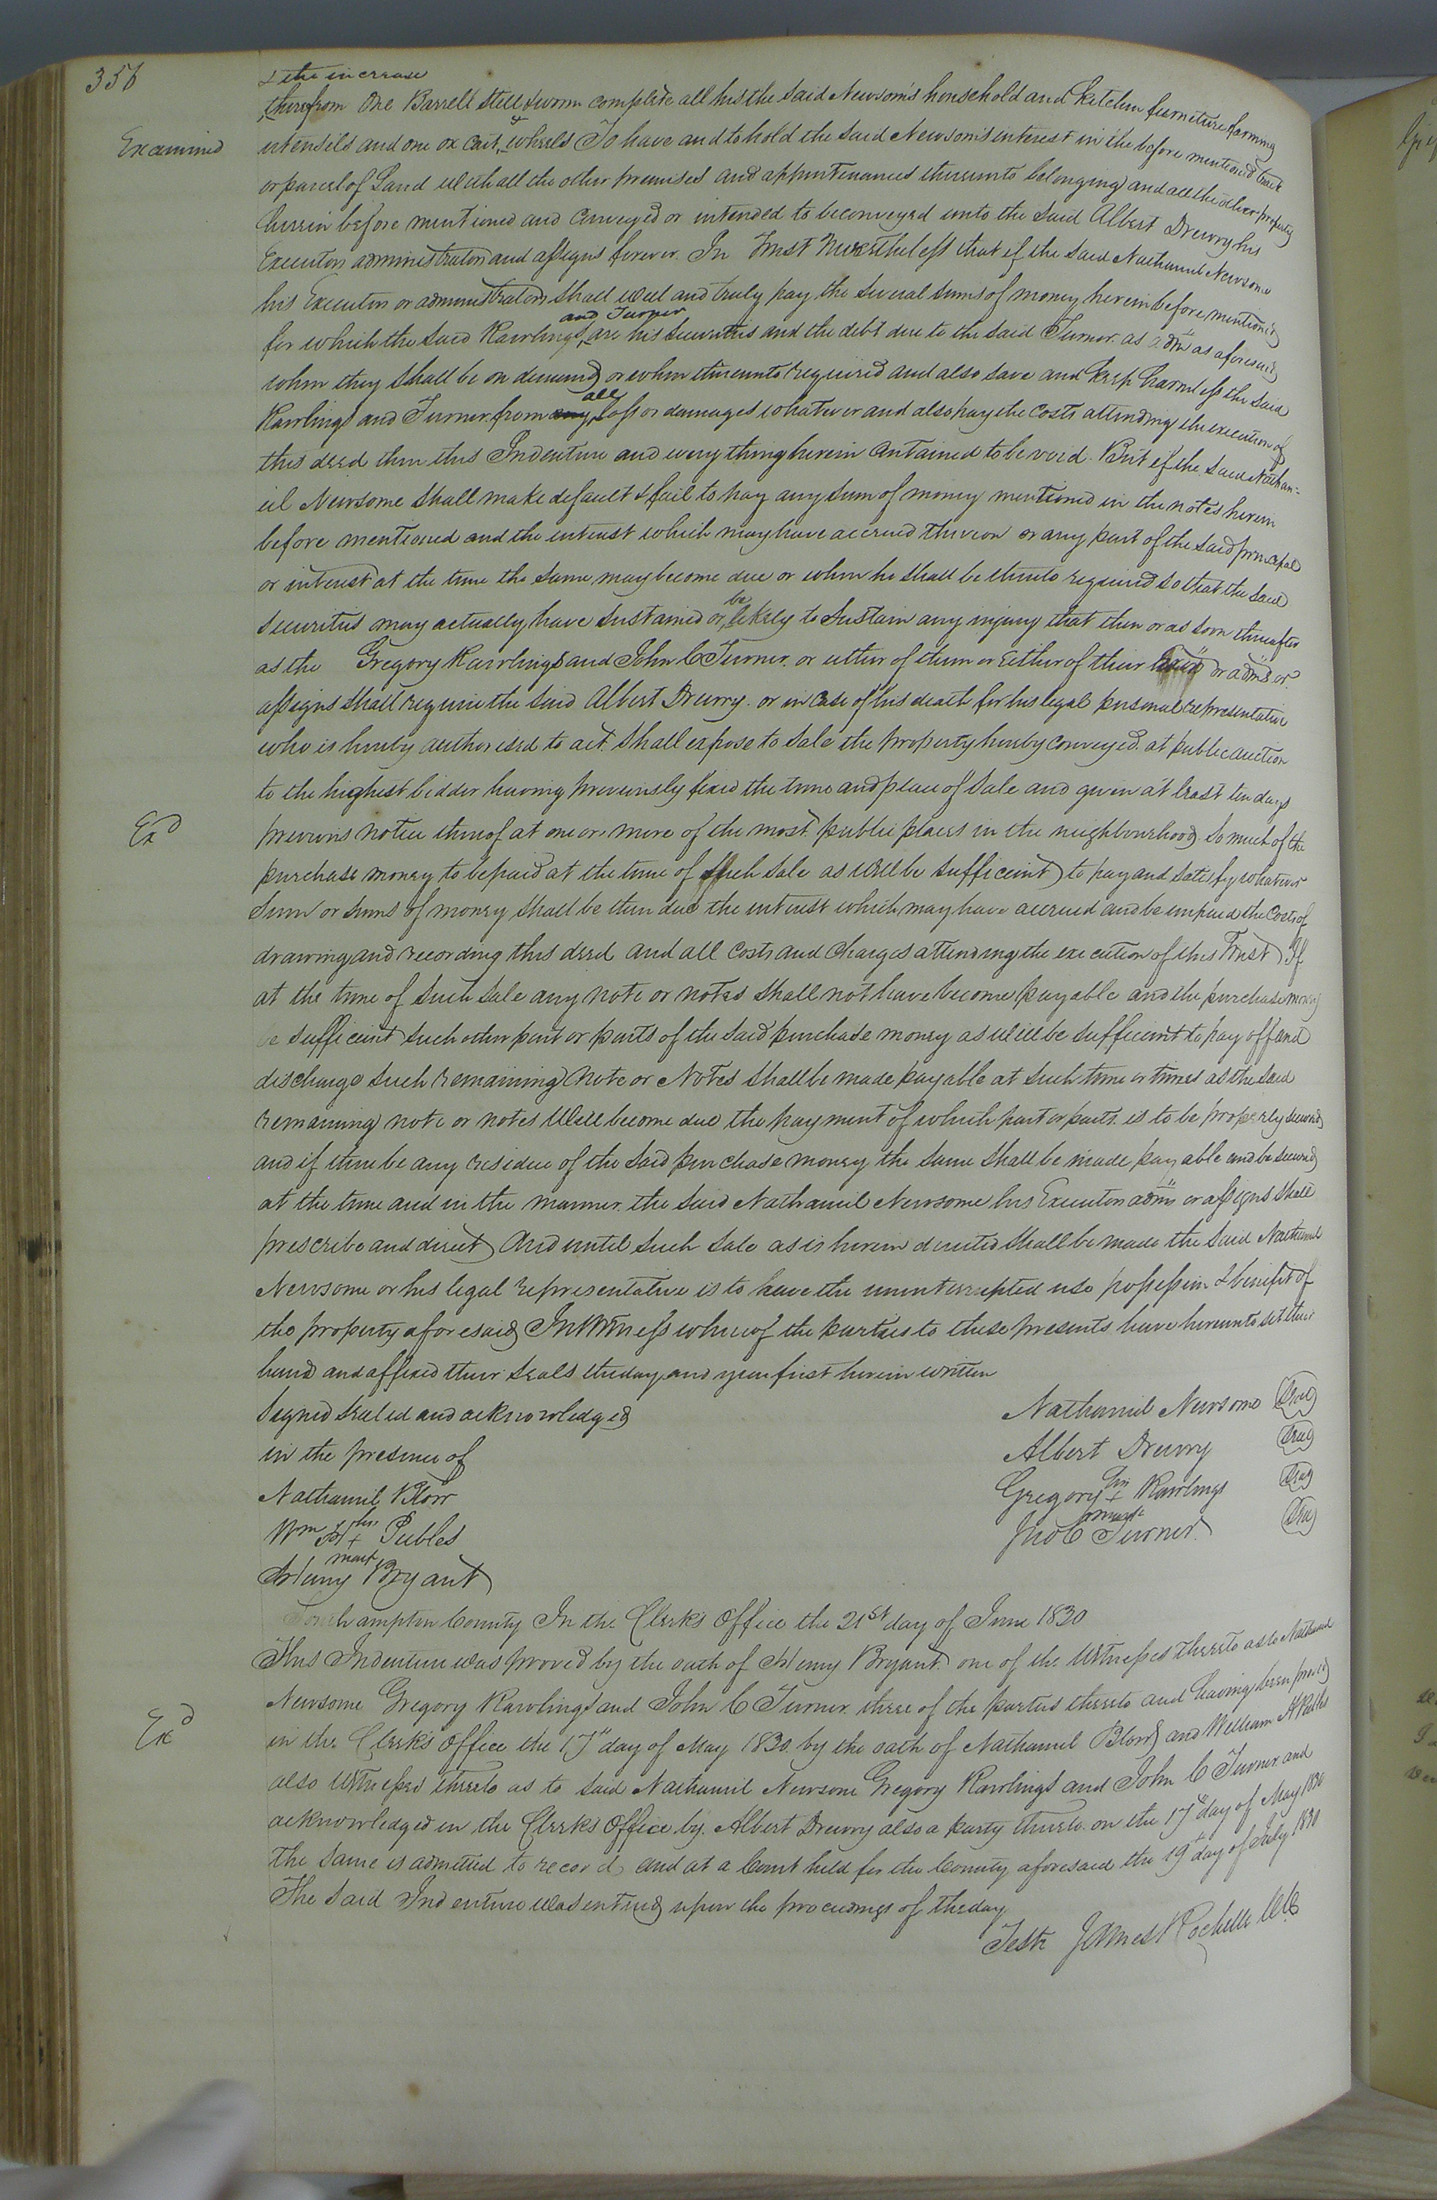 356
& the increase
therefrom One Barrell Still & worm complete all his the said Newsom's household and Kitchen furniture farming
Examined
utensils and one ox cart & wheels To have and to hold the said Newsom's interest in the before mentioned tract
or parcel of Land with all the other premises and appurtenances thereunto belonging and all the other property
herein before mentioned and conveyed or intended to be conveyed unto the said Albert Drewry his
Executors administrators and assigns forever. In Trust Nevertheless that if the said Nathaniel Newsome
his Executors or administrators shall well and truly pay the several sums of money herein before mentioned
and Turner
for which the said Rawlings are his securities and the debt due to the said Turner as adm as aforesaid
when they shall be on demand or when thereunto required and also save and keep harmless the said
all
Rawlings and Turner from any loss or damages whatever and also pay the costs attending the execution of
this deed then this Indenture and every thing herein contained to be void. But if the said Nathan=
iel Newsome shall make default & fail to pay any sum of money mentioned in the notes herein
before mentioned and the interest which may have accrued thereon or any part of the said principal
or interest at the time the same may become due or when he shall be thereto required so that the said
be
securities may actually have sustained or likely to sustain any injury that then or as soon thereafter
as the Gregory Rawlings and John C Turner or either of them or either of their or adm's or
assigns shall require the said Albert Drewry or in case of his death for his legal personal representative
who is hereby authorised to act shall expose to sale the property hereby conveyed at public auction
to the highest bidder having previously fixed the time and place of sale and given at least ten days
Ex^d
previous notice thereof at one or more of the most public places in the neighbourhood so much of the
purchase money to be paid at the time of such sale as will be sufficient to pay and satisfy whatever
sum or sums of money shall be then due the interest which may have accrued and be unpaid the costs of
drawing and recording this deed and all costs and charges attending the execution of this Trust If
at the time of such sale any note or notes shall not have become payable and the purchase money
be sufficient such other part or parts of the said purchase money as will be sufficient to pay off and
discharge such remaining Note or Notes shall be made payable at such time or times as the said
remaining note or notes will become due the payment of which part or parts is to be properly secured
and if there be any residue of the said purchase money the same shall be made payable and be secured
at the time and in the manner the said Nathaniel Newsome his Executors adm's or assigns shall
prescribe and direct And until such sale as is herein directed shall be made the said Nathaniel
Newsome or his legal representative is to have the uninterrupted use possession & benefit of
the property aforesaid In Witness whereof the parties to these presents have hereunto set their
hand and affixed their seals the day and year first herein written
Signed Sealed and acknowledged
in the presence of
Nathaniel
Wm H his + mark Peebles
Henry Bryant
Nathaniel Newsome Seal
Albert Drewry Seal
Gregory his + mark Rawlings Seal
Jno C Turner Seal
Southampton County In the Clerk's Office the 21st day of June 1830
This Indenture was proved by the oath of Henry Bryant one of the Witnesses thereto as to Nathaniel
Newsome Gregory Rawlings and John C Turner three of the parties thereto and having been proved
Ex^d
in the Clerk's Office the 17th day of May 1830 by the oath of Nathaniel and William H Peebles
also Witnesses thereto as to said Nathaniel Newsome Gregory Rawlings and John C Turner and
acknowledged in the Clerks Office by Albert Drewry also a party thereto on the 17th day of May 1830
The same is admitted to record and at a Court held for the County aforesaid the 19th day of July 1830
The said Indenture was entered upon the proceedings of the day
Teste James Rochelle